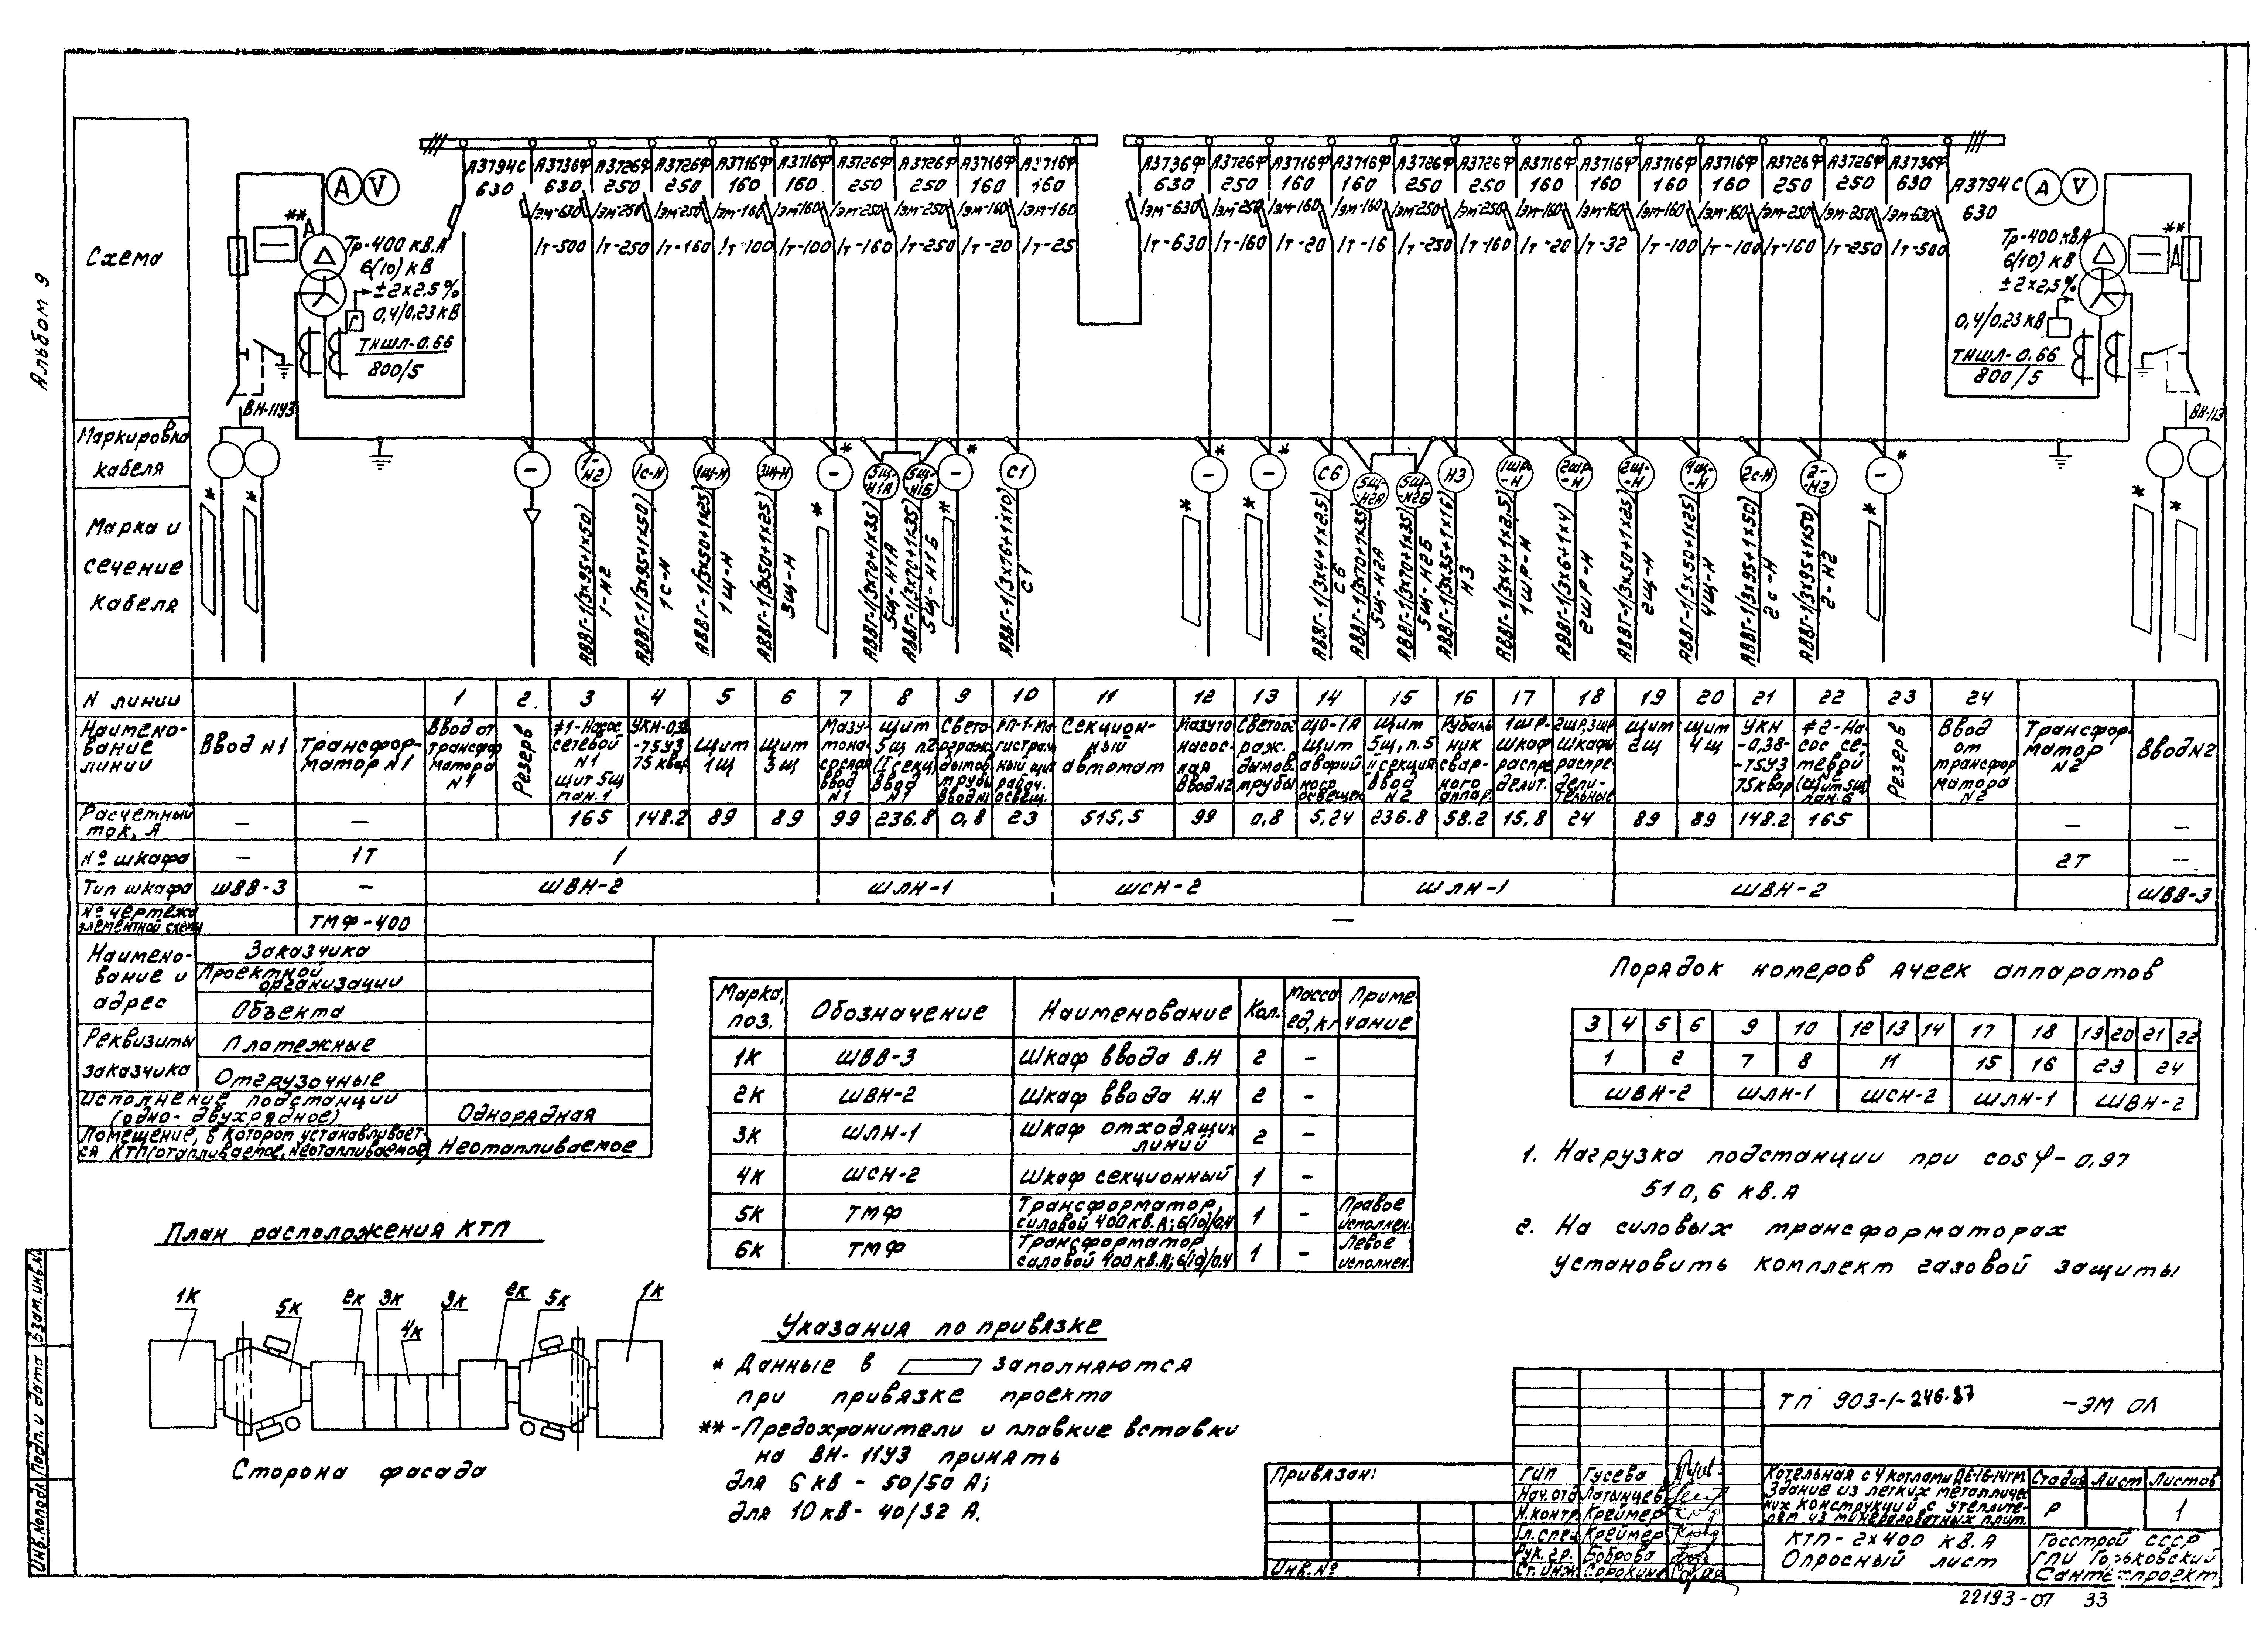 Альбом 9
Схема
А3794С А3736Ф А3726Ф А3726Ф А3716Ф А3716Ф А3726Ф А3726Ф А3716Ф А3716Ф
630 630 250 250 160 160 250 250 160 160
Iэм-630 Iэм-250 Iэм-250 Iэм-160 Iэм-160 Iэм-250 Iэм-250 Iэм-160 Iэм-160
Iт-500 Iт-250 Iт-160 Iт-100 Iт-100 Iт-160 Iт-250 Iт-20 Iт-25
А3736Ф А3726Ф А3716Ф А3716Ф А3726Ф А3726Ф А3716Ф А3716Ф А3716Ф А3716Ф А3726Ф А3726Ф А3736Ф А3794С
630 250 160 160 250 250 160 160 160 160 250 250 630 630
Iэм-630 Iэм-250 Iэм-160 Iэм-160 Iэм-250 Iэм-250 Iэм-160 Iэм-160 Iэм-160 Iэм-160 Iэм-250 Iэм-250 Iэм-630
Iт-630 Iт-160 Iт-20 Iт-16 Iт-250 Iт-160 Iт-20 Iт-32 Iт-100 Iт-100 Iт-160 Iт-250 Iт-500
A V
**
Тр-400 кв.А
6(10) кв
±2х2,5%
0,4/0,23 кв
ТНШЛ-0.66
800/5
ВН-11У3
A V
**
Тр-400 кВА
6(10) кв
±2х2,5%
0,4/0,23 кв
ТНШЛ-0.66
800/5
Маркировка
кабеля
– 1-Н2 1с-Н 1щ-Н 3щ-Н – 5щ-Н1А 5щ-Н1Б – С1
– – С6 5щ-Н2А 5щ-Н2Б Н3 1шр-Н 2шр-Н 2щ-Н 4щ-Н 2с-Н 2-Н2 –
Марка и
сечение
кабеля
АВВГ-1(3х95+1х50) 1-Н2
АВВГ-1(3х95+1х50) 1с-Н
АВВГ-1(3х50+1х25) 1щ-Н
АВВГ-1(3х50+1х25) 3щ-Н
АВВГ-1(3х70+1х35) 5щ-Н1А
АВВГ-1(3х70+1х35) 5щ-Н1Б
АВВГ-1(3х16+1х10) С1
АВВГ-1(3х4+1х2,5) С6
АВВГ-1(3х70+1х35) 5щ-Н2А
АВВГ-1(3х70+1х35) 5щ-Н2Б
АВВГ-1(3х35+1х16) Н3
АВВГ-1(3х4+1х2,5) 1шр-Н
АВВГ-1(3х6+1х4) 2шр-Н
АВВГ-1(3х50+1х25) 2щ-Н
АВВГ-1(3х50+1х25) 4щ-Н
АВВГ-1(3х95+1х50) 2с-Н
АВВГ-1(3х95+1х50) 2-Н2
N линии 1 2. 3 4 5 6 7 8 9 10 11 12 13 14 15 16 17 18 19 20 21 22 23 24
Наимено-
вание
линии
Ввод N1
Трансфор-
матор N1
Ввод от
трансфор
матора
N1
Резерв
#1-Насос
сетевой
N1
щит 5щ
пан.1
УКН-0,38
-75У3
75 квар
Щит
1щ
Щит
3щ
Мазу-
тона-
сосная
Ввод
N1
Щит
5щ п2
(I секц)
Ввод
N1
Свето-
огражд.
дымов.
трубы
Ввод N1
РП-1-Ма-
гистрал
ный щит
рабоч.
освещ.
Секцион-
ный
автомат
Мазуто
насос-
ная
Ввод N2
Светоог
раж.
дымов.
трубы
ЩО-1А
Щит
аварий
ного
освещен.
Щит
5щ, п.5
II секция
Ввод
N2
Рубиль
ник
свар-
ного
аппар.
1шр-
шкаф
распре
делит.
2шр,3шр
Шкафы
распре-
дели-
тельные
Щит
2щ
Щит
4щ
УКН
-0,38-
-75У3
75квар
#2-На-
сос се-
тевой
N2
(щит 5щ
пан.6
Резерв
Ввод
от
трансфор
матора
N2
Трансфор-
матор
N2
Ввод N2
Расчетный
ток, А – – 165 148.2 89 89 99 236.8 0,8 23 515,5 99 0,8 5,24 236.8 58.2 15,8 24 89 89 148.2 165 – –
№ шкафа – 1Т 1 2Т –
Тип шкафа ШВВ-3 – ШВН-2 ШЛН-1 ШСН-2 ШЛН-1 ШВН-2 ШВВ-3
№ чертежа
элементной схемы ТМФ-400 –
Наимено-
вание и
адрес
Заказчика
Проектной
организации
Объекта
Реквизиты
заказчика
Платежные
Отгрузочные
Исполнение подстанции
(одно- двухрядное) Однорядная
Помещение, в котором устанавливает-
ся КТП (отапливаемое, неотапливаемое) Неотапливаемое
Марка, поз. Обозначение Наименование Кол. Масса ед,кг Примечание
1К ШВВ-3 Шкаф ввода В.Н 2 –
2К ШВН-2 Шкаф ввода Н.Н 2 –
3К ШЛН-1 Шкаф отходящих линий 2 –
4К ШСН-2 Шкаф секционный 1 –
5К ТМФ Трансформатор силовой 400кв.А; 6(10)/0,4 1 – Правое исполнен.
6К ТМФ Трансформатор силовой 400кв.А; 6(10)/0,4 1 – Левое исполнен.
Порядок номеров ячеек аппаратов
3 4 5 6 9 10 12 13 14 17 18 19 20 21 22
1 2 7 8 11 15 16 23 24
ШВН-2 ШЛН-1 ШСН-2 ШЛН-1 ШВН-2
1. Нагрузка подстанции при cosφ-0,97
510,6 кв.А
2. На силовых трансформаторах
установить комплект газовой защиты
План расположения КТП
1К 5К 2К 3К 4К 3К 2К 5К 1К
Сторона фасада
Указания по привязке
* Данные в заполняются
при привязке проекта
**-Предохранители и плавкие вставки
на ВН-11У3 принять
для 6кв - 50/50 А;
для 10кв- 40/32 А.
Привязан:
Инв.№
ГИП Гусева
Нач.отд Латынцев
Н.контр. Креймер
Гл.спец Креймер
Рук.гр. Боброва
Ст.инж. Сорокина
ТП 903-1-246.87 -ЭМ ОЛ
Котельная с 4 котлами ДЕ-16-14ГМ.
Здание из легких металличес
ких конструкций с утеплите-
лем из минераловатных плит.
Стадия Лист Листов
Р 1
КТП-2х400 кв.А
Опросный лист
Госстрой СССР
ГПИ Горьковский
Сантехпроект
22193-07 33
Инв.№подл. Подп. и дата Взам.инв.№